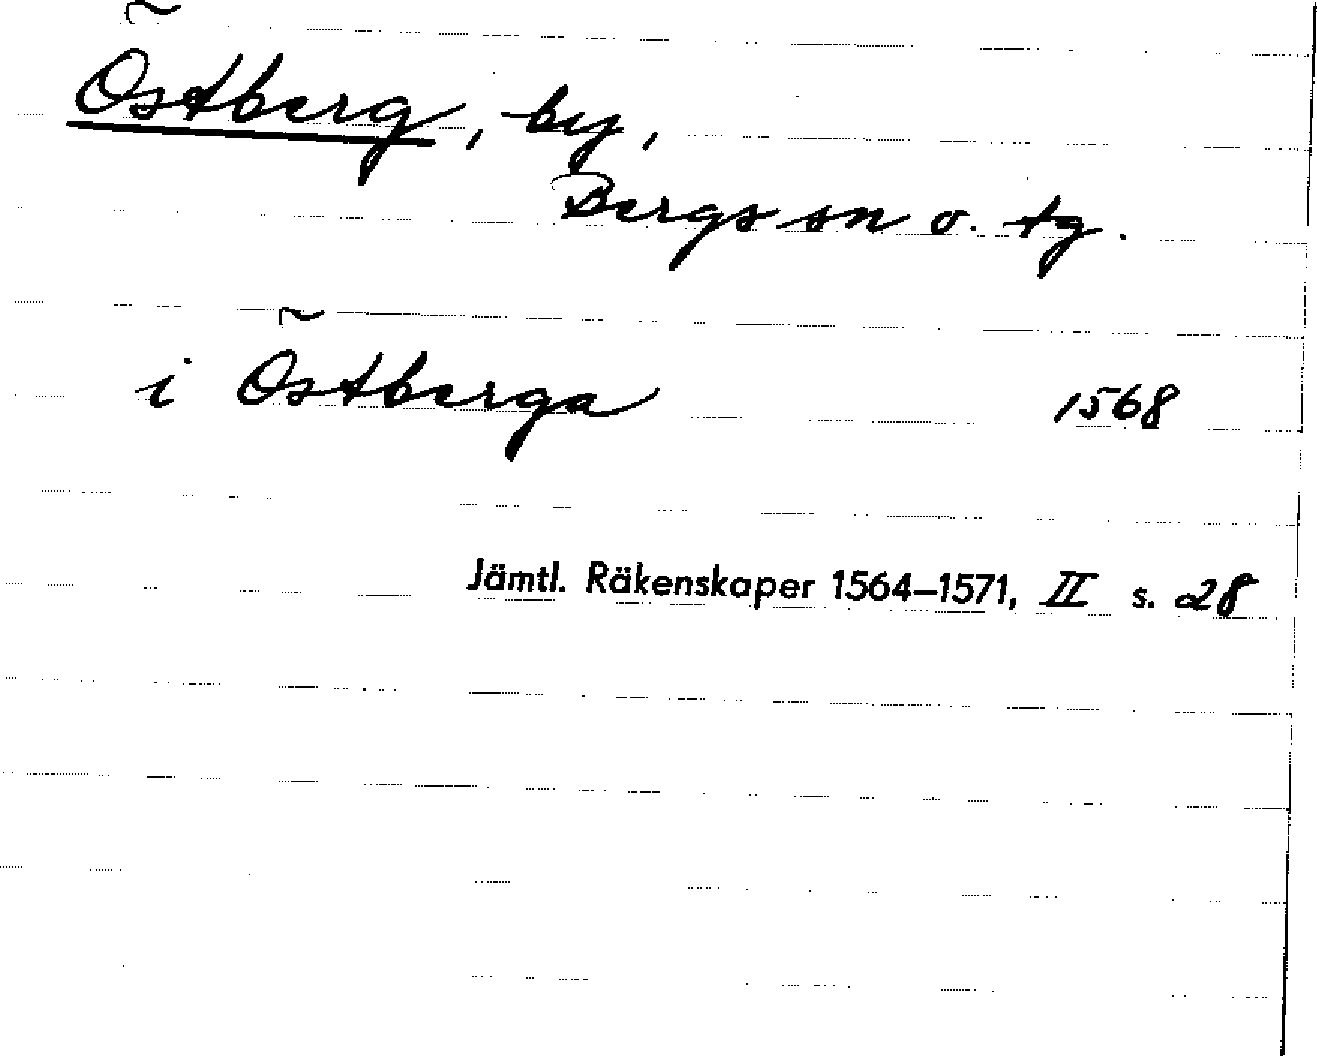 Östberg, by,
Bergs sn o. tg.
i Östberga 1568
Jämtl. Räkenskaper 1564–1571, II s. 28